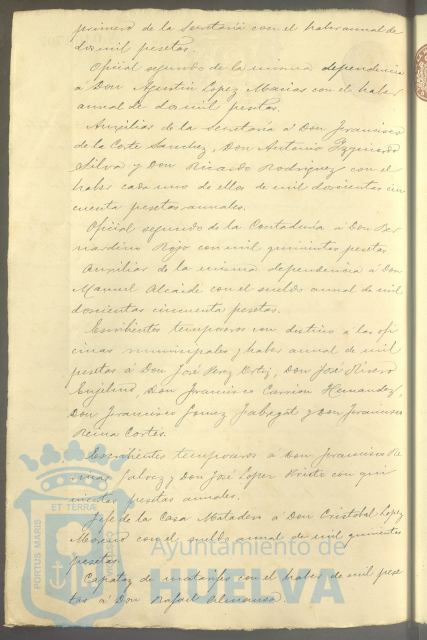 primero de la Secretaría con el haber annal de
dos mil pesetas.
Oficial segundo de la misma dependencia
á Don Agustin Lopez Macias con el haber
annal de dos mil pesetas.
Auxilias de la Secretaría á Don Francisco
de la Corte Sanchez, Don Antonio Izquierdo
Silva y Don Ricardo Rodriguez con el
haber cada uno de ellos de mil doscientas cin
cuenta pesetas annales.
Oficial segundo de la Contaduría á Don Ber
nardino Rojo con mil quinientas pesetas
Auxiliar de la misma dependencia á Don
Manuel Alcaide con el sueldo annal de mil
doscientas cincuenta pesetas.
Escribientes temporeros con destino a las ofi
cinas municipales y haber annal de mil
pesetas á Don José Perez Ortiz, Don José Rivero
Don Francisco Carrion Hernandez,
Don Francisco Gomez y Don Francisco
Reina Cortés.
Escribientes temporeros á Don Francisco
Galvez y Don José Lopez con qui
nientas pesetas annales.
Jefe de la Casa Matadero á Don Cristobal Lopez
Moreno con el sueldo annal de mil quinientas
pesetas.
Capataz de matanzas con el haber de mil pese
tas á Don Rafael Almansa.
PORTUS MARIS
ET TERRA
Ayuntamiento de
HUELVA